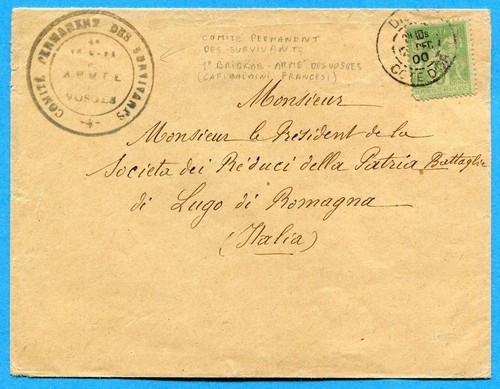 COMITÉ PERMANENT DES SURVIVANTS
ARMÉE
VOSGES
COMITÉ PERMANENT
DES SURVIVANTS
1ª BRIGADE - ARMÉ DES VOSGES
(GARIBALDINI FRANCESI)
DIJON
DEC
00
COTE D'OR
Monsieur
Monsieur le Président de la
Societa dei Réduci della Patria Battaglie
di Lugo di Romagna
(Italia)